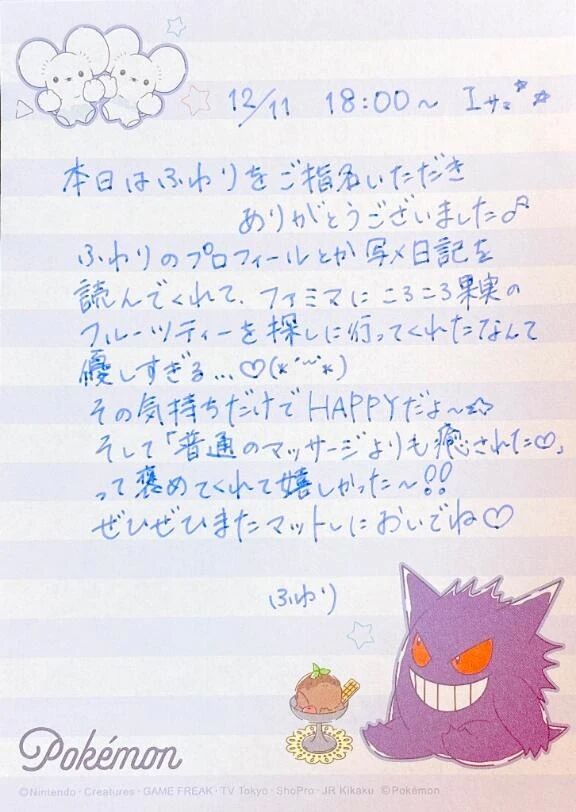 12/11 18:00～ Iサマ
本日はふわりをご指名いただき
ありがとうございました♪
ふわりのプロフィールとか写メ日記を
読んでくれて、ファミマにころころ果実の
フルーツティーを探しに行ってくれたなんて
優しすぎる...♡(*´˘`*)
その気持ちだけでHAPPYだよ～☆
そして「普通のマッサージよりも癒された♡」
って褒めてくれて嬉しかった～!!
ぜひぜひまたマットしにおいでね♡
ふわり
Pokémon
©Nintendo・Creatures・GAME FREAK・TV Tokyo・ShoPro・JR Kikaku ©Pokémon